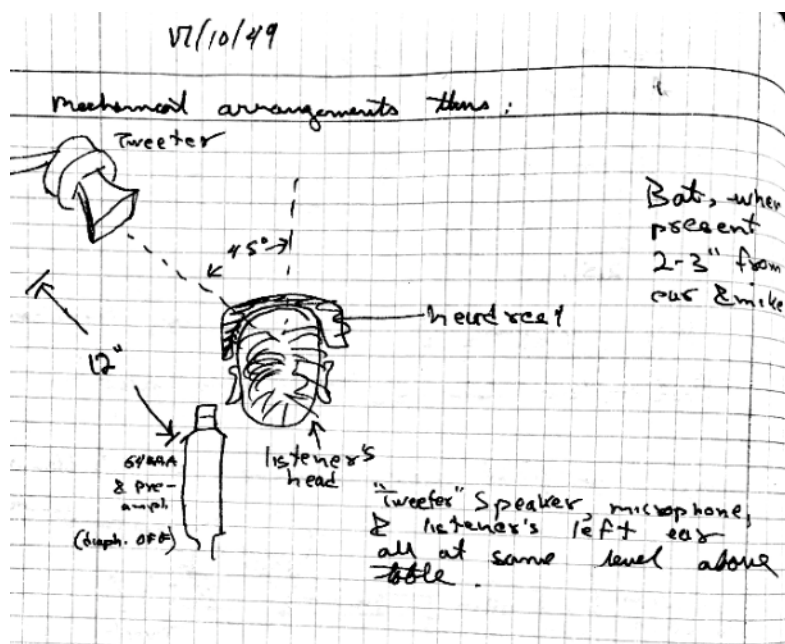 VI/10/49
Mechanical arrangements thus:
Tweeter
45°
Bat, when
present
2-3" from
ear & mike
headrest
12"
listener's
head
640AA
& pre-
amph.
(diaph. OFF)
"Tweeter" Speaker, microphone,
& listener's left ear
all at same level above
table.